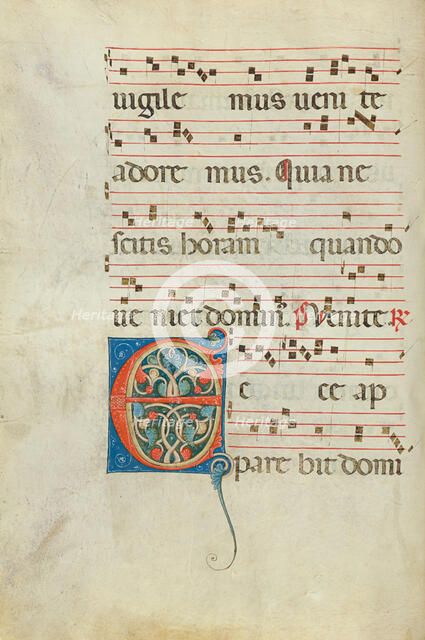 uigile mus ueni te
adore mus. Quia ne
scitis horam quando
ue niet domin. ps Venite. R
E c ce ap
pare bit domi
Heritage Heritage
Heritage
Heritage Heritage